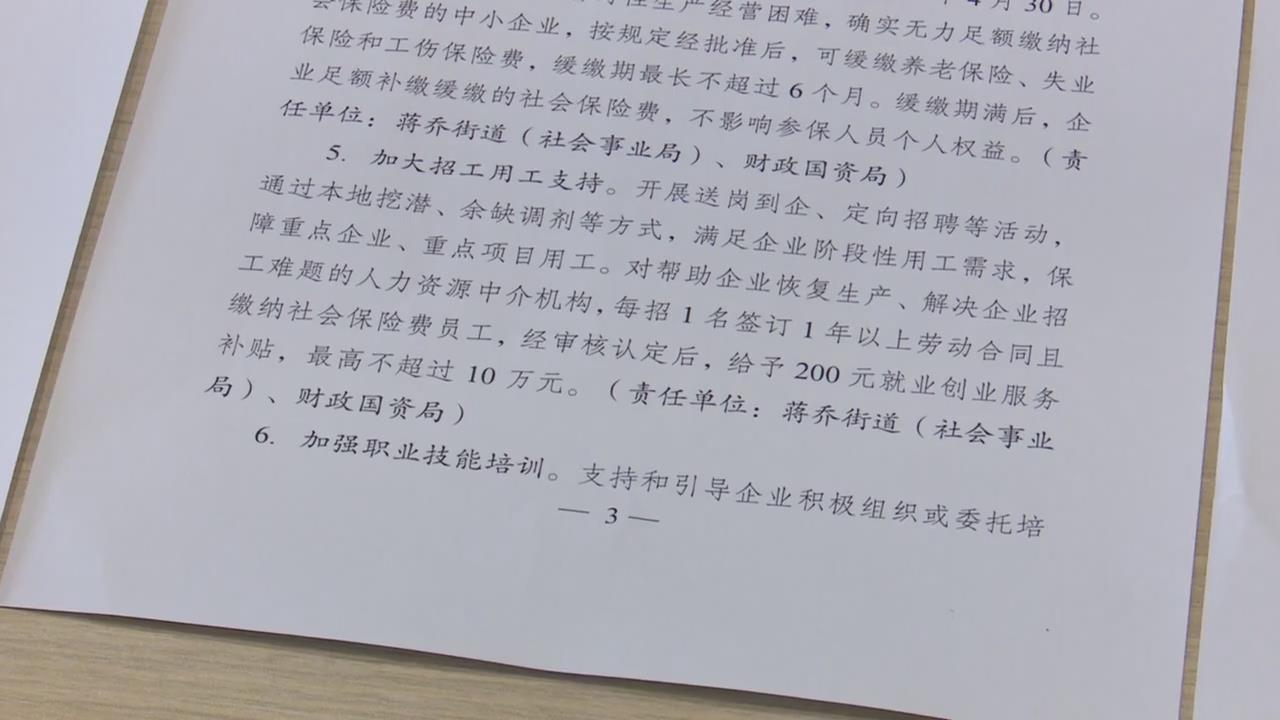 4月30日。
会保险费的中小企业，按规定经批准后，可缓缴养老保险、失业
生产经营困难，确实无力足额缴纳社
保险和工伤保险费，缓缴期最长不超过6个月。缓缴期满后，企
业足额补缴缓缴的社会保险费，不影响参保人员个人权益。（责
任单位：蒋乔街道（社会事业局）、财政国资局）
5. 加大招工用工支持。开展送岗到企、定向招聘等活动，
通过本地挖潜、余缺调剂等方式，满足企业阶段性用工需求，保
障重点企业、重点项目用工。对帮助企业恢复生产、解决企业招
工难题的人力资源中介机构，每招1名签订1年以上劳动合同且
缴纳社会保险费员工，经审核认定后，给予200元就业创业服务
补贴，最高不超过10万元。（责任单位：蒋乔街道（社会事业
局）、财政国资局）
6. 加强职业技能培训。支持和引导企业积极组织或委托培
— 3 —